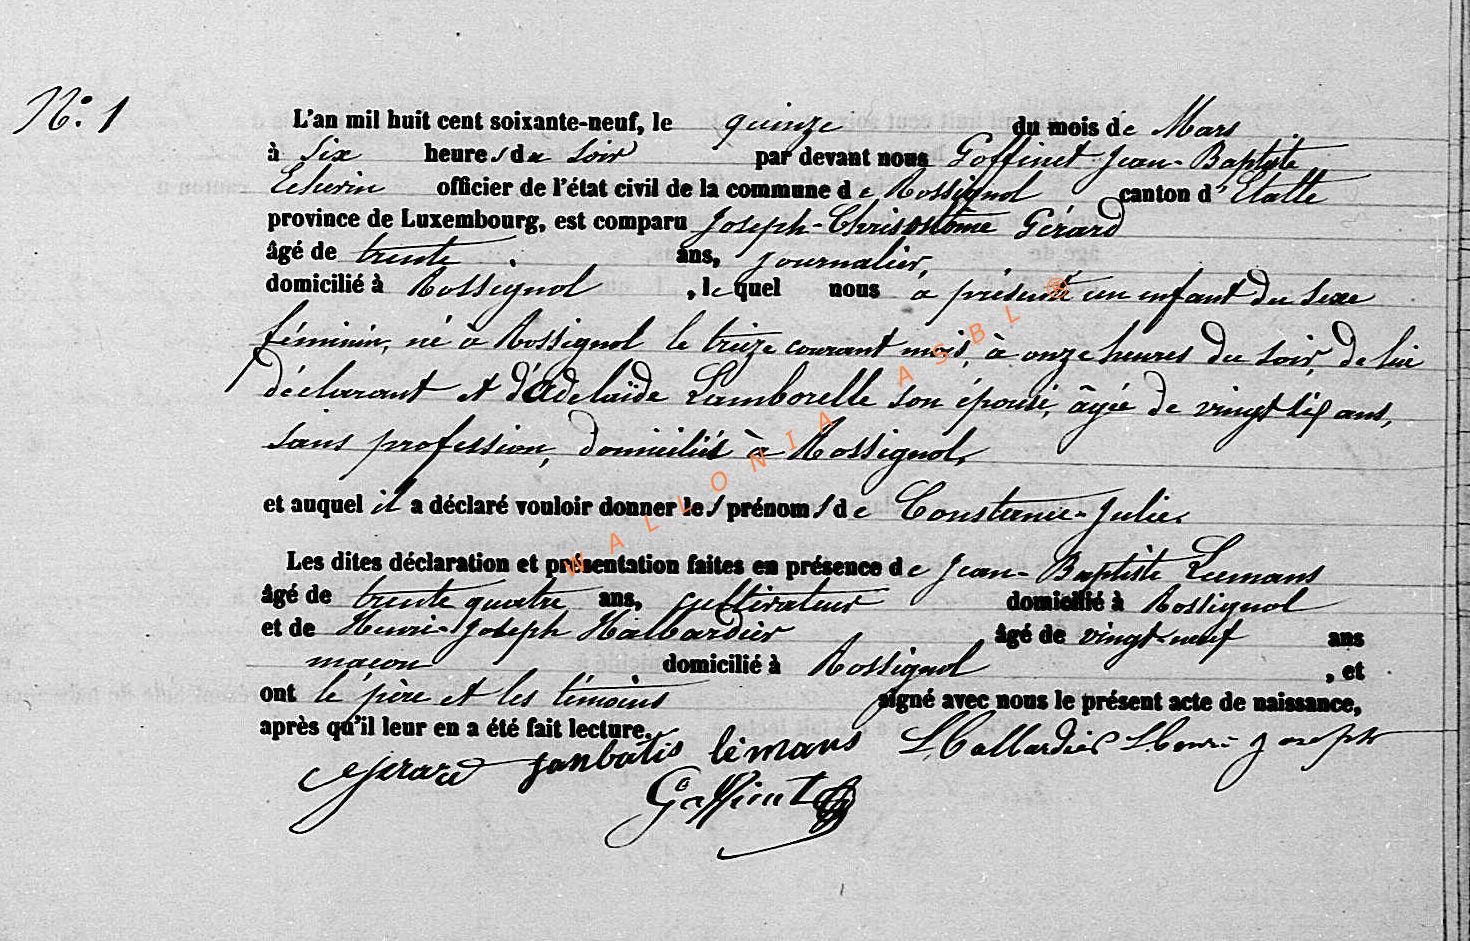 N.º 1
L'an mil huit cent soixante-neuf, le quinze du mois de Mars
à Six heures du soir par devant nous Goffinet Jean-Baptiste
Echevin officier de l'état civil de la commune de Rossignol canton d'Etalle
province de Luxembourg, est comparu Joseph-Chrisostôme Gérard
âgé de trente ans, journalier,
domicilié à Rossignol, lequel nous a présenté un enfant du sexe
féminin, né à Rossignol le treize courant mois, à onze heures du soir, de lui
déclarant et d'Adelaïde Lamborelle son épouse, âgée de vingt six ans,
sans profession, domiciliés à Rossignol,
et auquel il a déclaré vouloir donner les prénoms de Constance-Julie.
Les dites déclaration et présentation faites en présence de Jean-Baptiste Lemans
âgé de trente quatre ans, cultivateur domicilié à Rossignol
et de Henri-Joseph Halbardier âgé de vingt-neuf ans
maçon domicilié à Rossignol, et
ont le père et les témoins signé avec nous le présent acte de naissance,
après qu'il leur en a été fait lecture.
Gerard janbatis lémans Halbardier Henri joseph
Goffinet
WALLONIA ASBL ®